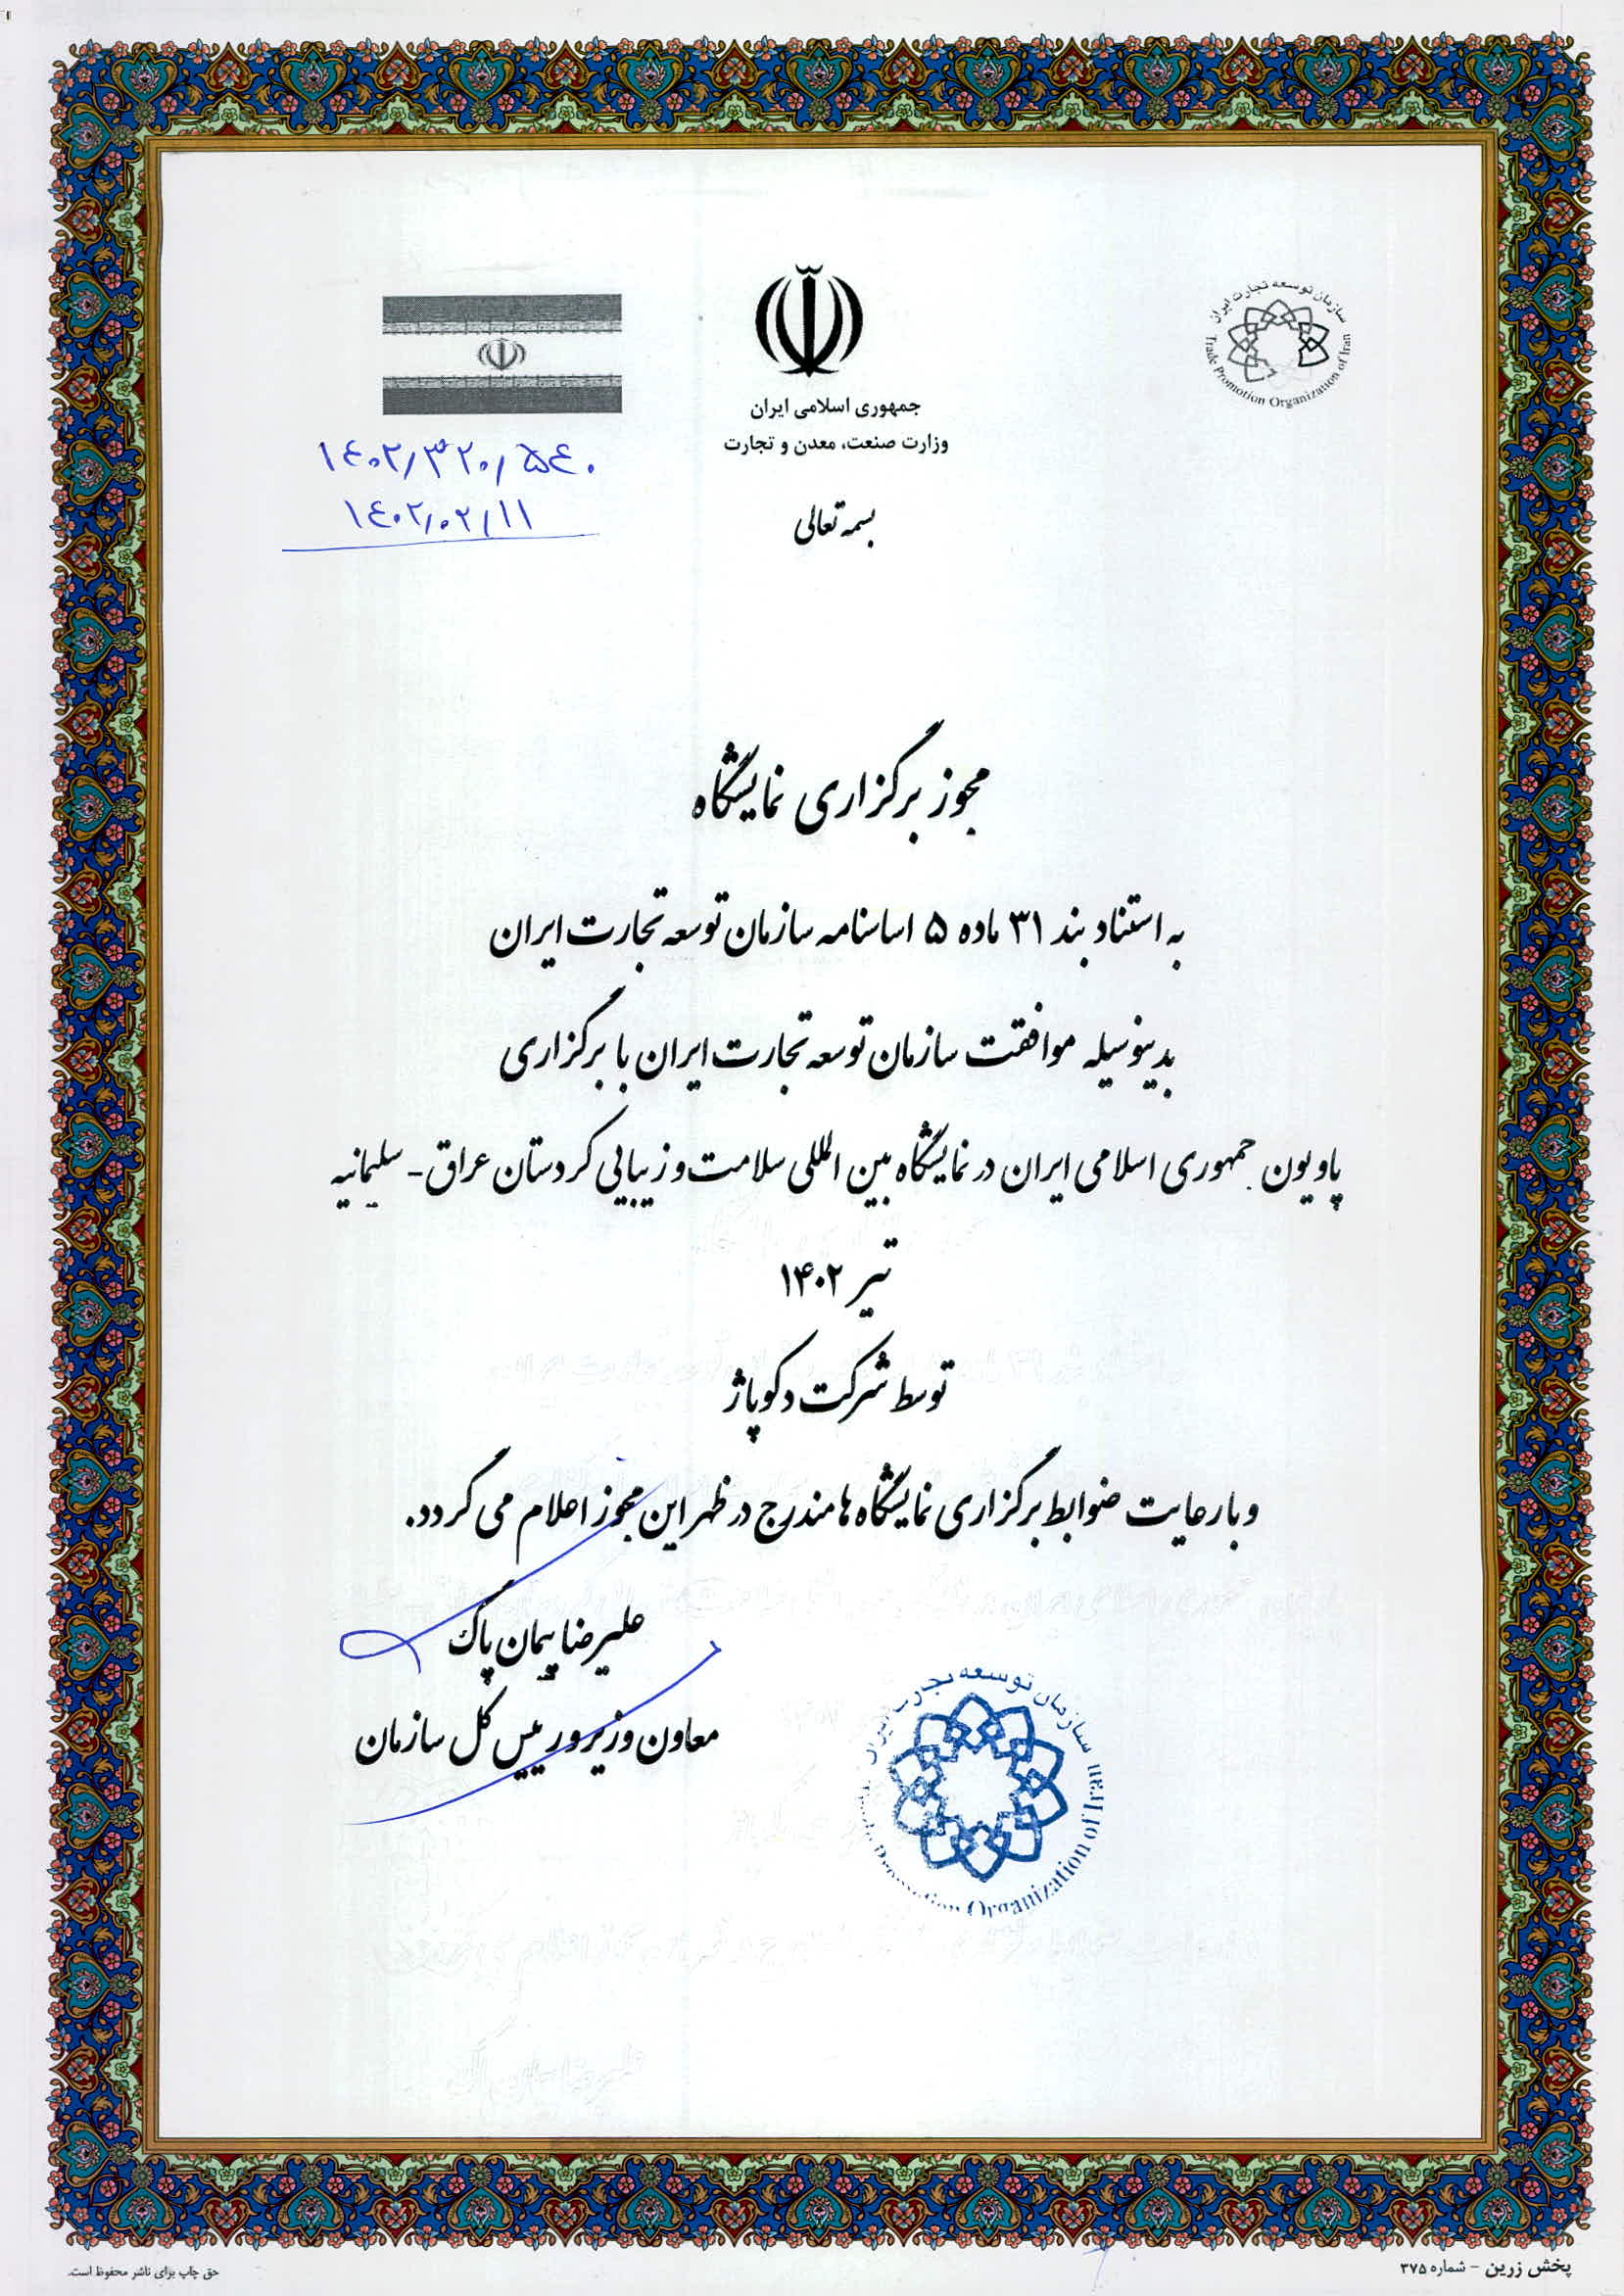 سازمان توسعه تجارت ایران
Trade Promotion Organization of Iran
جمهوری اسلامی ایران
وزارت صنعت، معدن و تجارت
۱۴۰۲/۳۲۰/۵۴۰
۱۴۰۲/۰۲/۱۱
بسمه تعالی
مجوز برگزاری نمایشگاه
به استناد بند ۳۱ ماده ۵ اساسنامه سازمان توسعه تجارت ایران
بدینوسیله موافقت سازمان توسعه تجارت ایران با برگزاری
پاویون جمهوری اسلامی ایران در نمایشگاه بین المللی سلامت و زیبایی کردستان عراق - سلیمانیه
تیر ۱۴۰۲
توسط شرکت دکوپاژ
و با رعایت ضوابط برگزاری نمایشگاه ها مندرج در ظهر این مجوز اعلام می گردد.
علیرضا پیمان پاک
معاون وزیر و رییس کل سازمان
سازمان توسعه تجارت ایران
Trade Promotion Organization of Iran
پخش زرین - شماره ۳۷۵
حق چاپ برای ناشر محفوظ است.